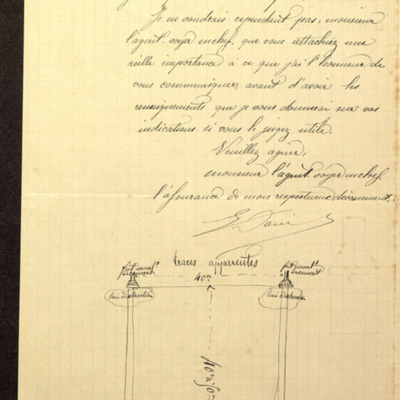 Je ne voudrais cependant pas, monsieur
l'agent-voyer en chef, que vous attachiez une
réelle importance à ce que j'ai l'honneur de
vous communiquer, avant d'avoir les
renseignements que je vous donnerai sur vos
indications, si vous le jugez utile.
Veuillez agréer,
monsieur l'agent-voyer en chef,
l'assurance de mon respectueux dévouement.
traces apparentes
40m
40 à 50m